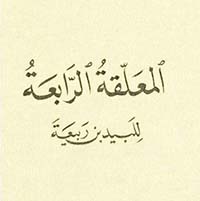 المعلّقةُ الرّابعَةُ
للبيد بن ربيعَة